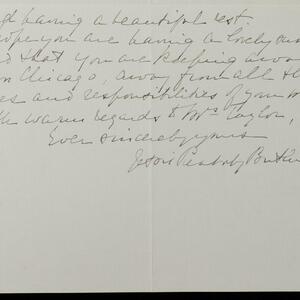 having a beautiful rest.
hope you are having a lovely
that you are keeping away
Chicago, away from all
and responsibilities of your
warm regards to Mrs Taylor,
Ever sincerely yours
Peabody